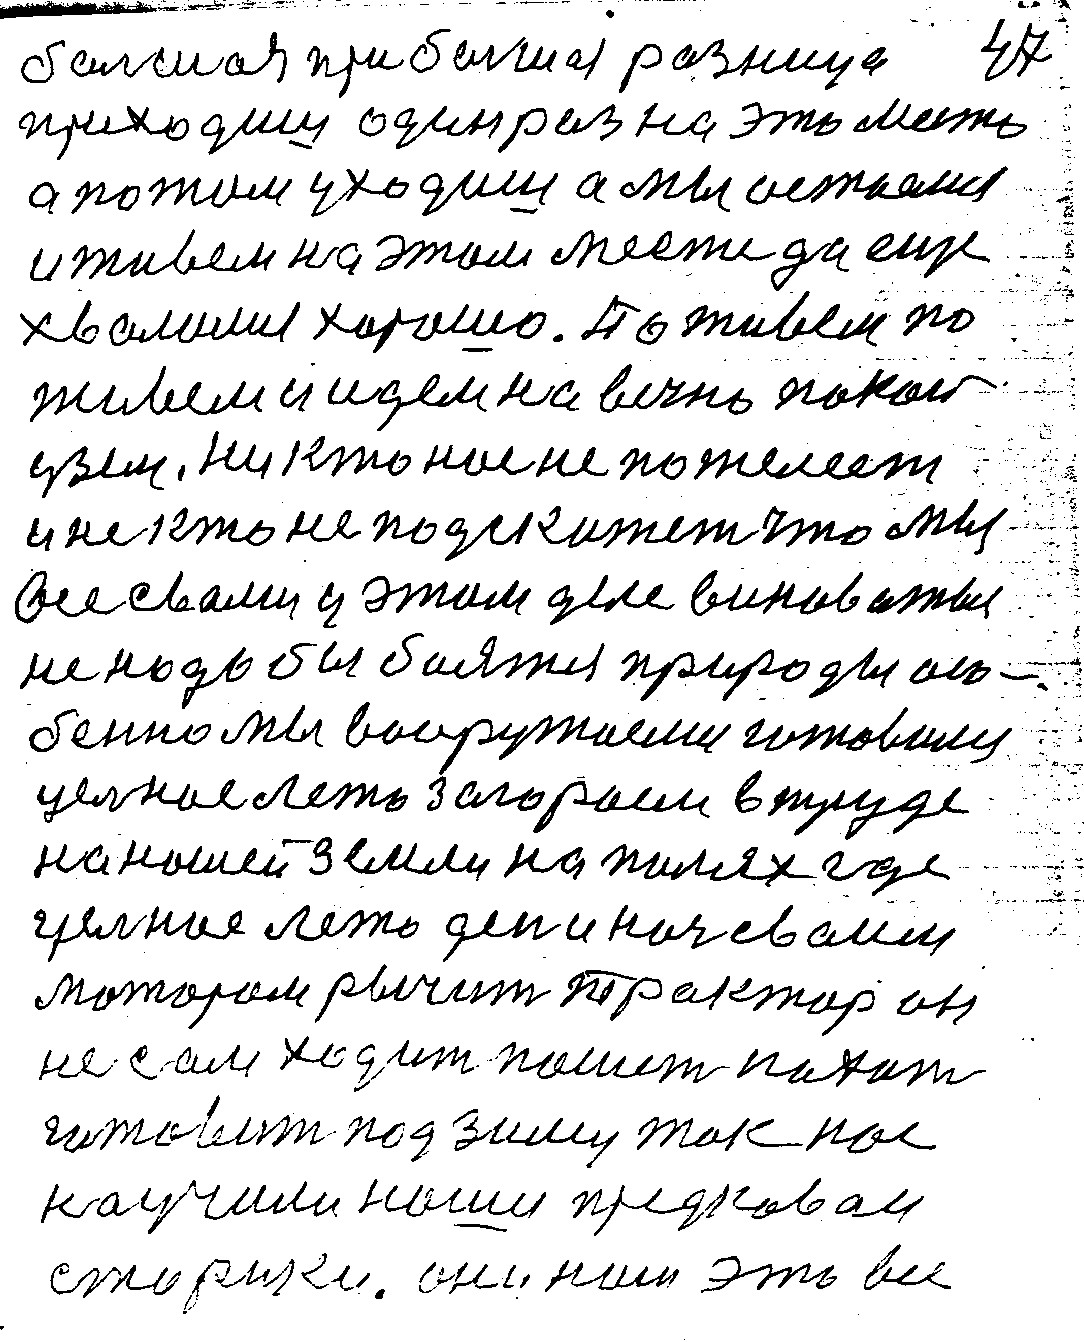 болшая приболшая разница 47
приходиш один раз на это место
а потом уходиш а мы остаемя
и живем на этом месте да еще
хвалимя хорошо. По живем по
живем и идем на вечно покой
узем. Ни кто нас не пожелеет
и не кто не подскажет что мы
все свами у этом деле виноваты
не надо бы боятя природы осо-
бенно мы вооружаеми готовимя
целное лето загораем в труде
на нашей земли на полях где
целное лето ден и ноч сваим
мотором рычит трактор он
не сам ходит пашет пахот
готовит под зиму так нас
научили наши предковаи
старики. они нам это все